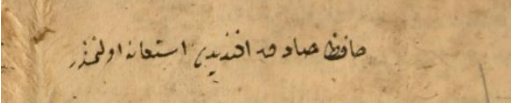 حافظ صادق افندیدن استعانه اولنمشدر